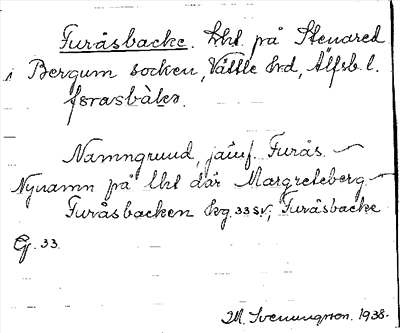 Furåsbacke. Lht på Stenared
i Bergum socken, Vättle hrd, Älfsb. l.
fɷrasbàkɷ.
Namngrund, jämf. Furås. —
Nynamn på lht där Margreteberg. —
Furåsbacken hg. 33 SV; Furåsbacke
G. 33.
M. Svenungsson. 1938.